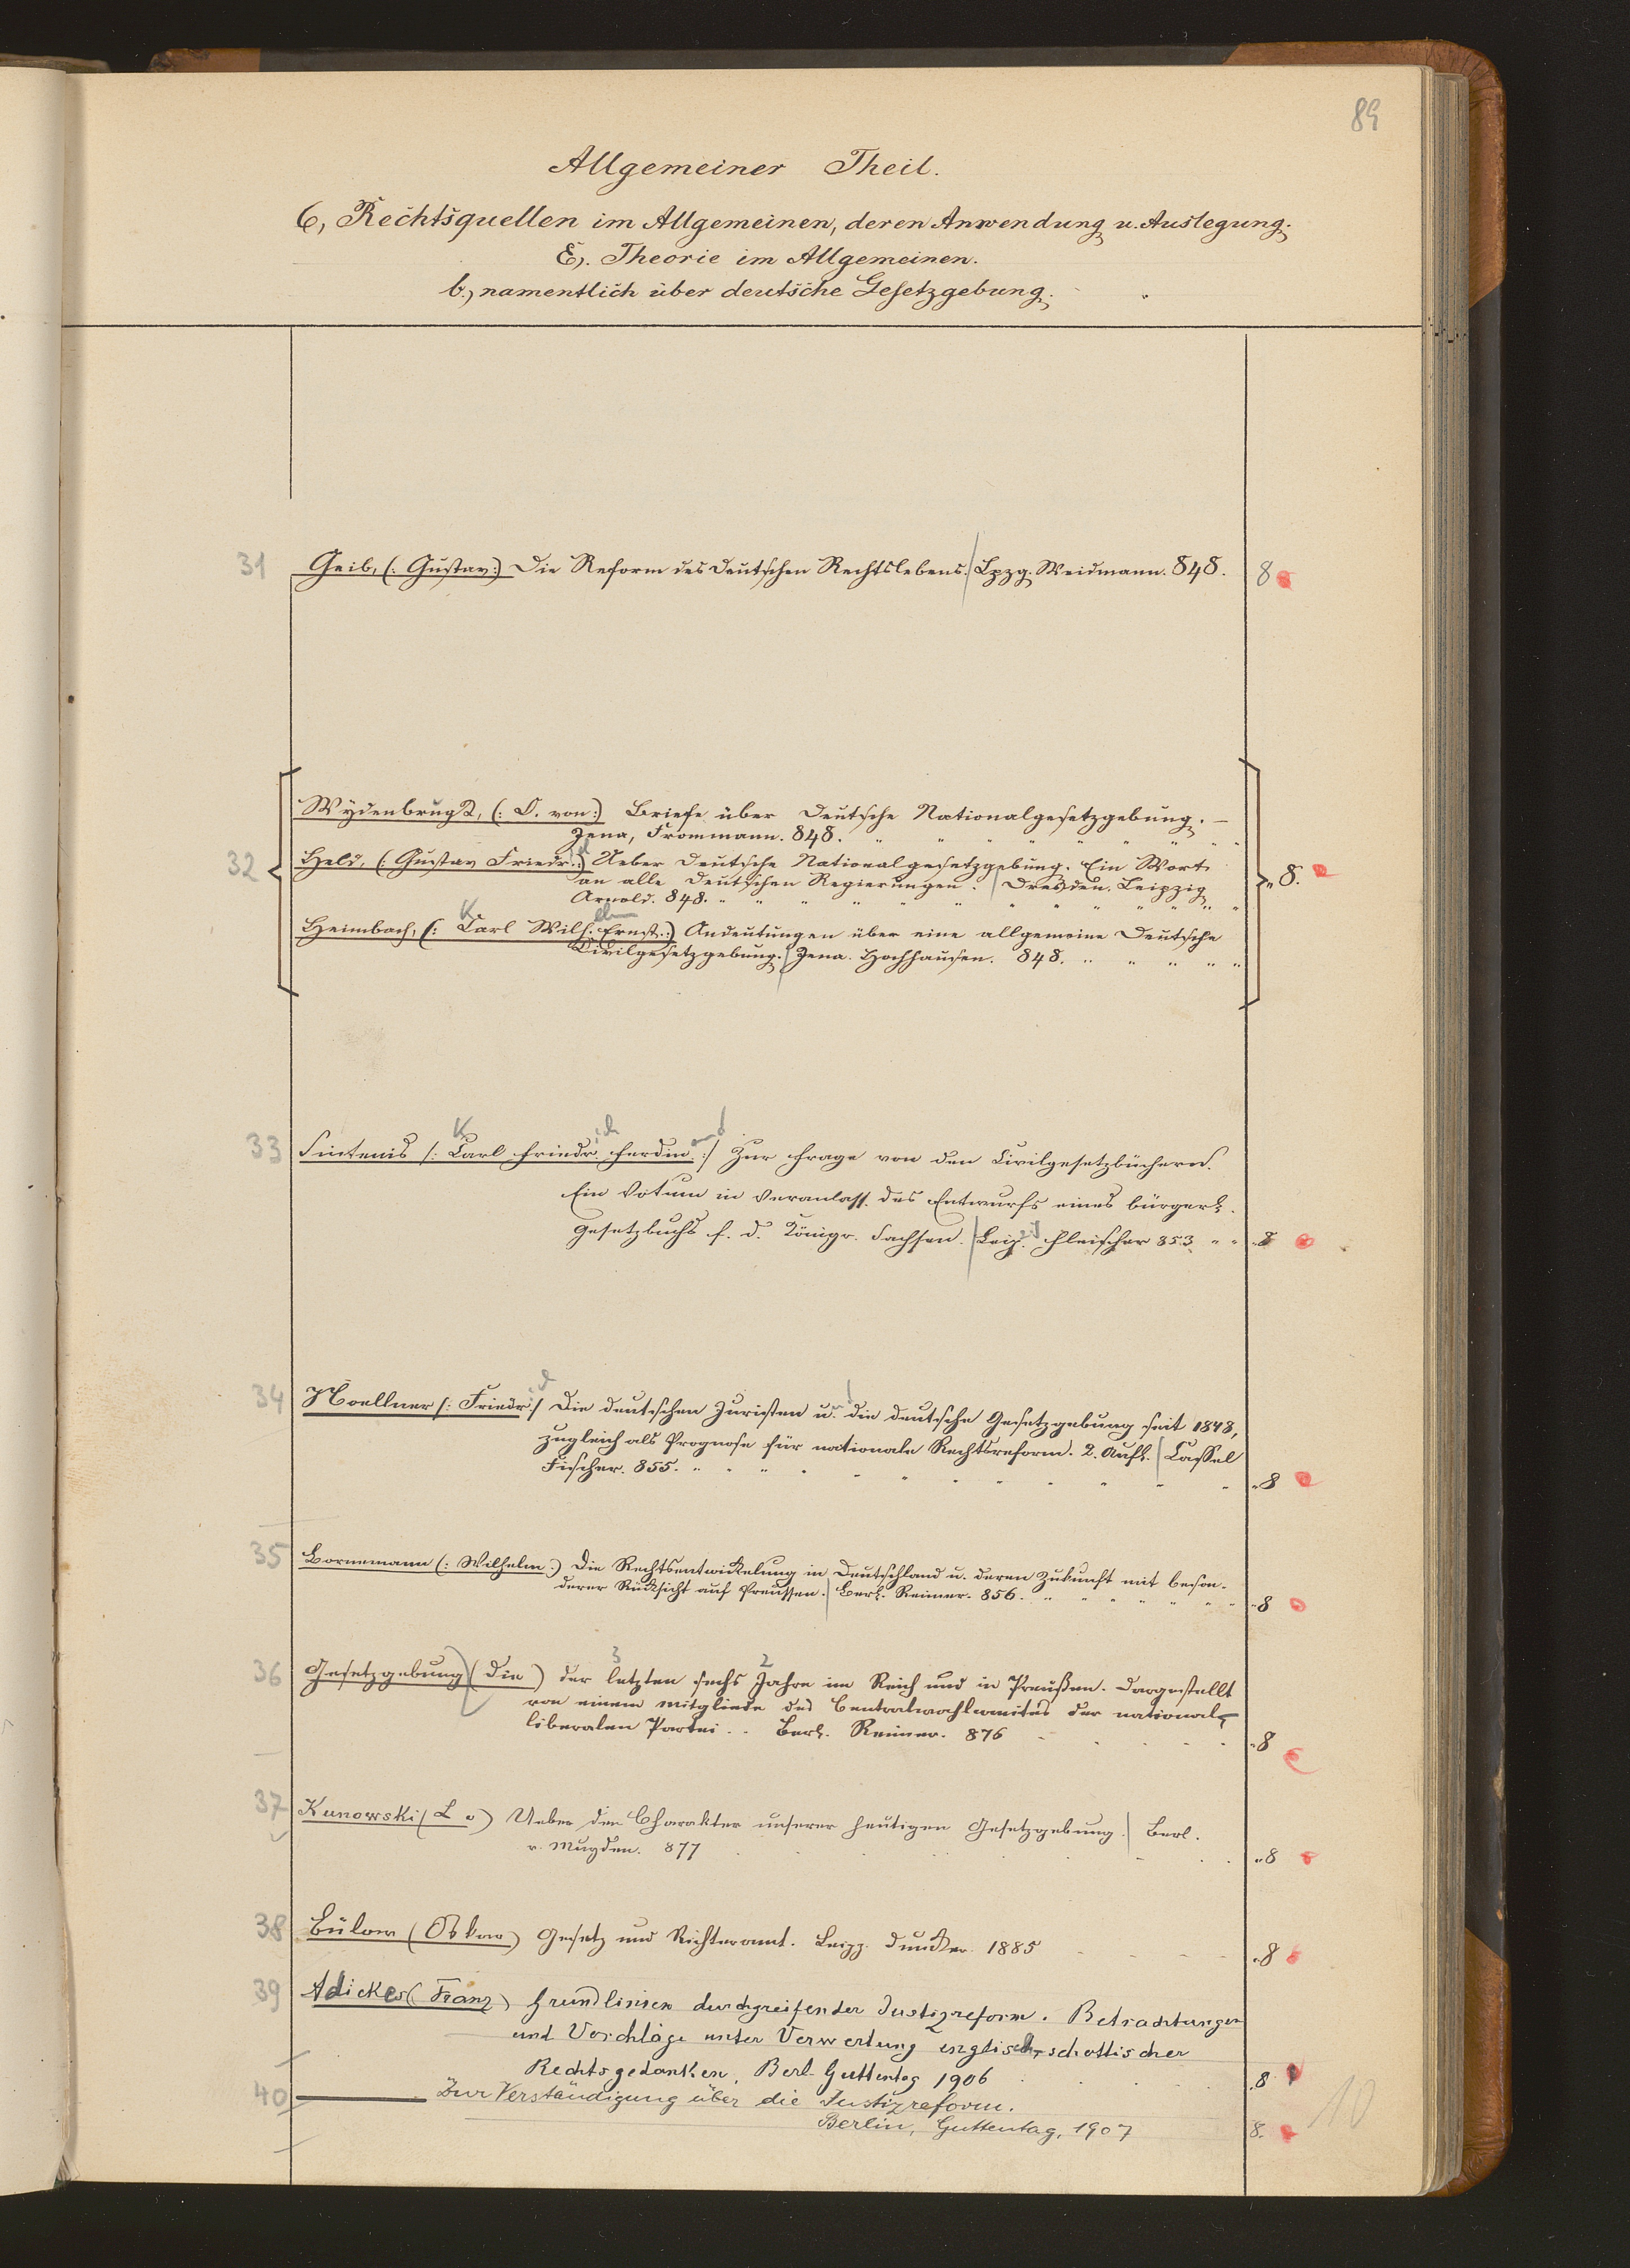 89
Allgemeiner Theil.
6, Rechtsquellen im Allgemeinen, deren Anwendung u. Auslegung.
E). Theorie im Allgemeinen.
b.) namentlich über deutsche Gesetzgebung.
31 Geib, (: Gustav:) Die Reform des deutschen Rechtslebens. Lpzg. Weidmann. 848. 8
Wÿdenbrugk, (: O. von:) Briefe über Deutsche Nationalgesetzgebung. —
Jena, Frommann. 848.
32 Held, (: Gustav Friedr.:) Ueber Deutsche Nationalgesetzgebung. Ein Wort
an alle Deutschen Regierungen. Dresden. Leipzig
Arnold. 848. " 8.
Heimbach, (: Carl Wilh. Ernst.:) Andeutungen über eine allgemeine Deutsche
Civilgesetzgebung. Jena. Hochhausen. 848.
33 Sintenis /: Carl Friedr. Ferdin. :/ Zur Frage von den Civilgesetzbüchern.
Ein Votum in Veranlass. des Entwurfs eines bürgerl.
Gesetzbuchs f. d. Königr. Sachsen. Leipz. Fleischer 853 " " " 8
34 Noellner /: Friedr :/ Die deutschen Juristen u. die deutsche Gesetzgebung seit 1848,
zugleich als Prognose für nationale Rechtsreform. 2. Aufl. Cassel
Fischer. 855. " 8
35 Bornemann (: Wilhelm :) Die Rechtsentwickelung in Deutschland u. deren Zukunft mit beson-
derer Rücksicht auf Preussen. Berl. Reimer. 856. " 8
36 Gesetzgebung (Die) der letzten sechs Jahre im Reich und in Preußen. Dargestellt
von einem Mitgliede des Centralwahlcomités der national-
liberalen Partei. Berl. Reimer. 876 " 8
37 Kunowski (L v) Ueber den Charakter unserer heutigen Gesetzgebung. Berl.
v. Mugden. 877 " 8
38 Bülow (Oskar) Gesetz und Richteramt. Leipz. Duncker. 1885 " 8
39 Adickes (Franz) Grundlinien durchgreifender Justizreform. Betrachtungen
und Vorschläge unter Verwertung englisch-schottischer
Rechtsgedanken. Berl. Guttentag 1906 8
40 ——— Zur Verständigung über die Justizreform.
Berlin, Guttentag, 1907 8.
10